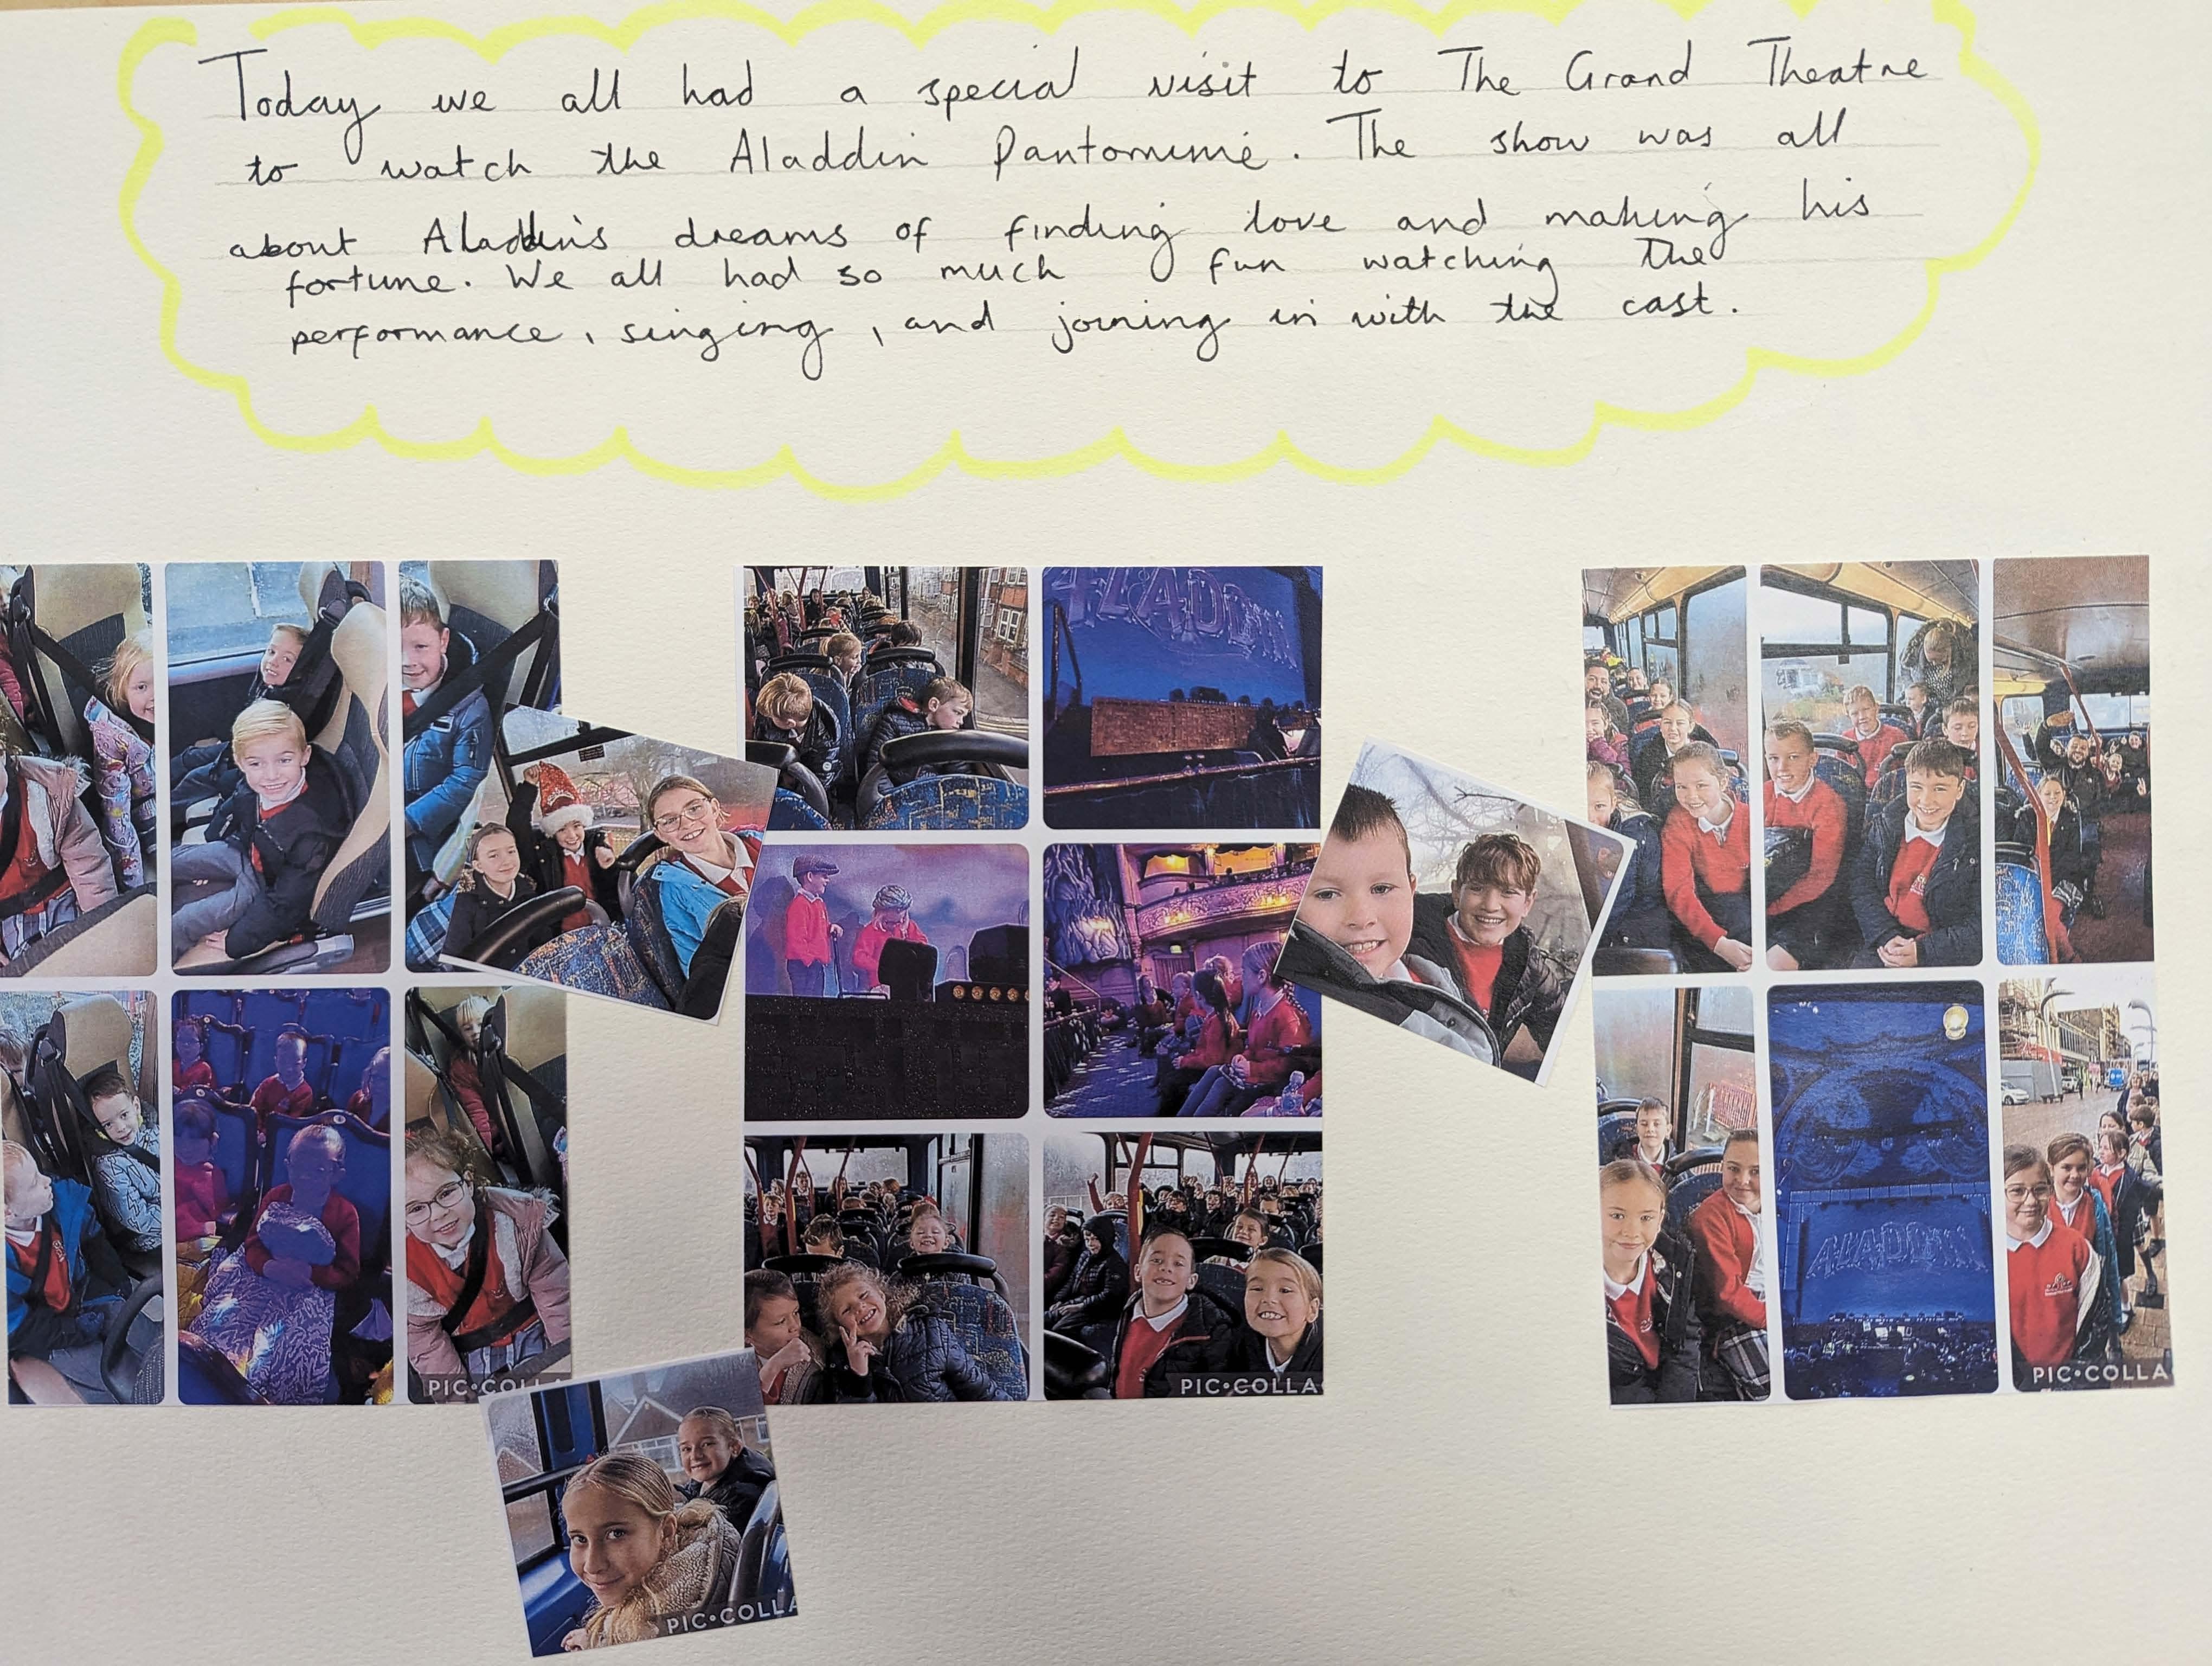 Today we all had a special visit to The Grand Theatre
to watch the Aladdin Pantomime. The show was all
about Aladdin's dreams of finding love and making his
fortune. We all had so much fun watching the
performance, singing, and joining in with the cast.
ALADDIN
ALADDIN
PIC•COLL
PIC•COLLA
PIC•COLLA
PIC•COLLA